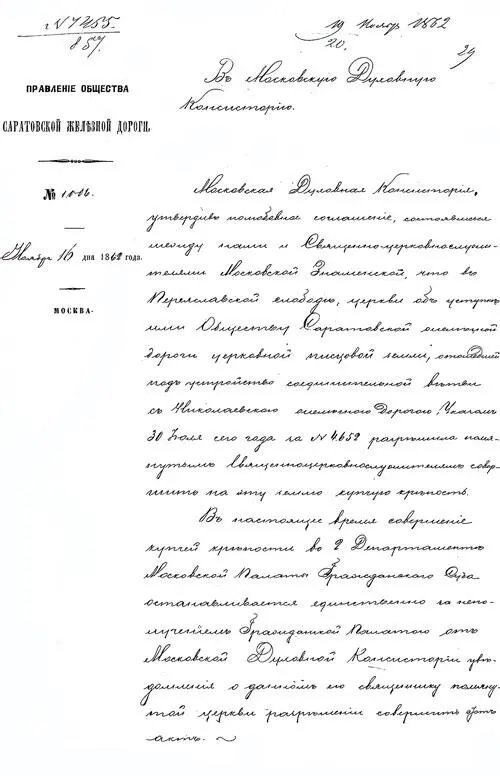 № 7255.
857
19 Ноябр 1862
20.
29
Въ Московскую Духовную
Консисторію.
ПРАВЛЕНІЕ ОБЩЕСТВА
САРАТОВСКОЙ ЖЕЛѢЗНОЙ ДОРОГИ.
№ 1006.
Ноября 16 дня 1862 года.
МОСКВА.
Московская Духовная Консисторія,
утвердивъ полюбовное соглашеніе, состоявшееся
между нами и Священно-церковнослужи-
телями Московской Знаменской, что въ
Переяславской слободѣ, церкви объ уступкѣ
ими Обществу Саратовской желѣзной
дороги церковной писцовой земли, отошедшей
подъ устройство соединительной вѣтви
съ Николаевскою желѣзною Дорогою, Указомъ
30 Іюля сего года за № 4652 разрѣшила помя-
нутымъ Священноцерковнослужителямъ совер-
шить на эту землю купчую крѣпость.
Въ настоящее время совершеніе
купчей крѣпости во 2 Департаментѣ
Московской Палаты Гражданскаго Суда
останавливается единственно за непо-
лученіемъ Гражданской Палатою отъ
Московской Духовной Консисторіи увѣ-
домленія о данномъ ею священнику помяну-
той церкви разрѣшеніи совершить этотъ
актъ.